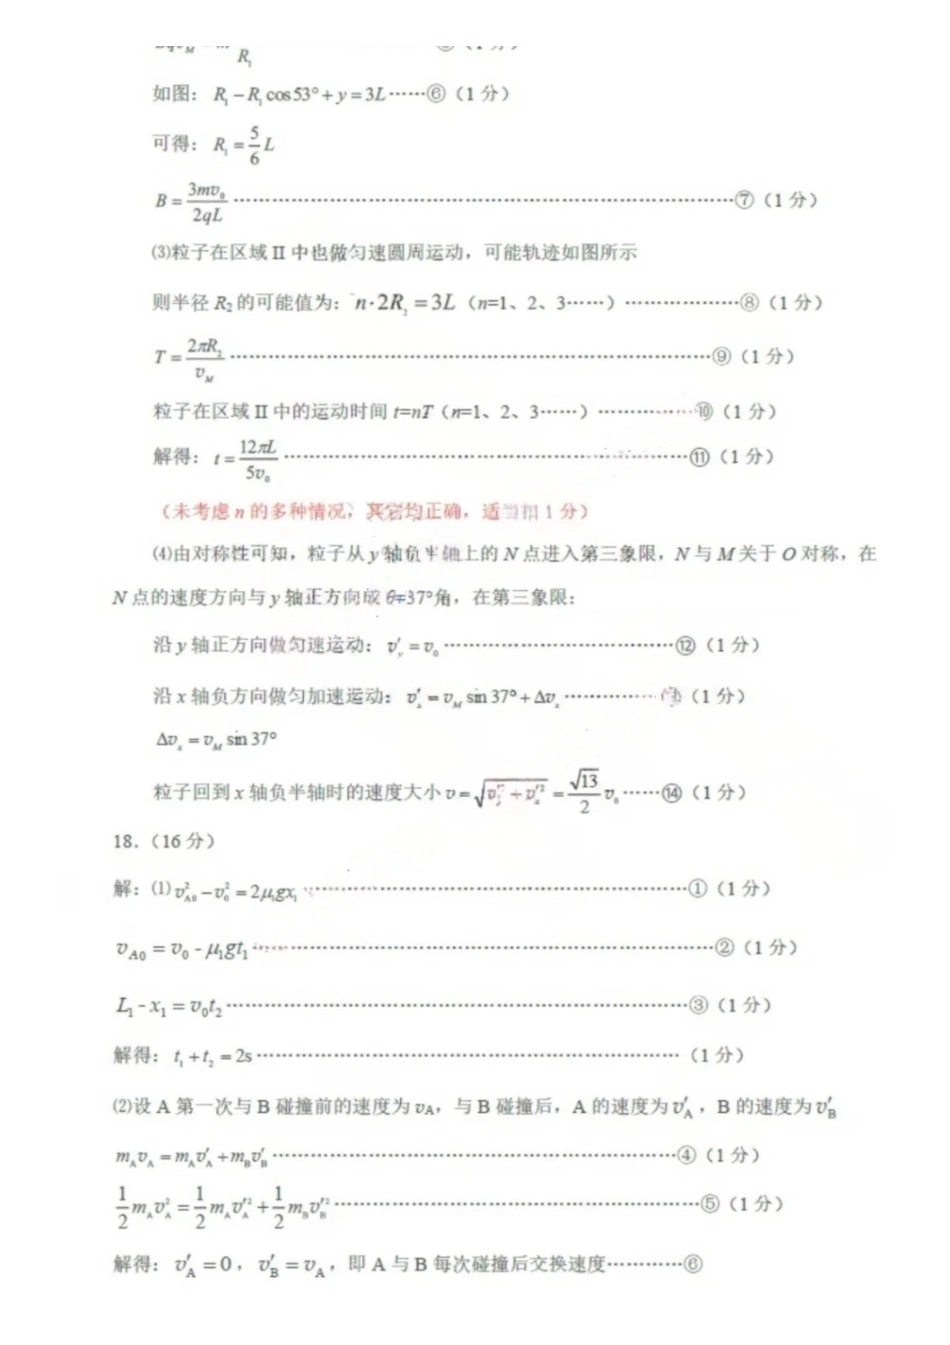 R₁
如图：R₁-R₁cos53°+y=3L……⑥（1 分）
可得：R₁=5/6 L
B=3mv₀/2qL……⑦（1 分）
⑶粒子在区域Ⅱ中也做匀速圆周运动，可能轨迹如图所示
则半径 R₂的可能值为：n·2R₂=3L（n=1、2、3……）……⑧（1 分）
T=2πR₂/v_M……⑨（1 分）
粒子在区域Ⅱ中的运动时间 t=nT（n=1、2、3……）……⑩（1 分）
解得：t=12πL/5v₀……⑪（1 分）
（未考虑 n 的多种情况，其它均正确，适当扣 1 分）
⑷由对称性可知，粒子从 y 轴负半轴上的 N 点进入第三象限，N 与 M 关于 O 对称，在
N 点的速度方向与 y 轴正方向成 θ=37°角，在第三象限：
沿 y 轴正方向做匀速运动：v′_y=v₀……⑫（1 分）
沿 x 轴负方向做匀加速运动：v′_x=v_M sin37°+Δv_x……（1 分）
Δv_x=v_M sin37°
粒子回到 x 轴负半轴时的速度大小 v=√(v′_y²+v′_x²)=√13/2 v₀……⑭（1 分）
18.（16 分）
解：⑴v_A0²-v₀²=2μ₁gx₁……①（1 分）
v_A0=v₀-μ₁gt₁……②（1 分）
L₁-x₁=v₀t₂……③（1 分）
解得：t₁+t₂=2s……（1 分）
⑵设 A 第一次与 B 碰撞前的速度为 v_A，与 B 碰撞后，A 的速度为 v′_A，B 的速度为 v′_B
m_A v_A=m_A v′_A+m_B v′_B……④（1 分）
1/2 m_A v_A²=1/2 m_A v′_A²+1/2 m_B v′_B²……⑤（1 分）
解得：v′_A=0，v′_B=v_A，即 A 与 B 每次碰撞后交换速度……⑥